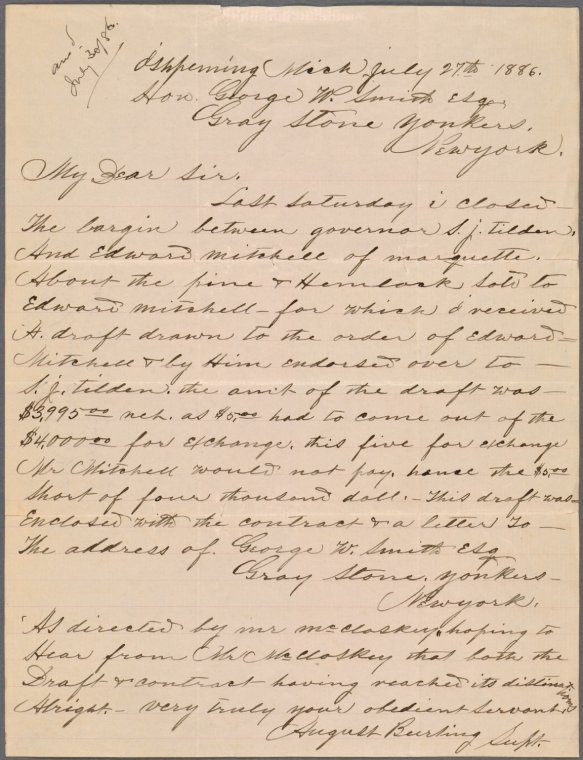 ans'd
July 30/86.
Ishpeming Mich July 27th 1886.
Hon. George W. Smith Esq.
Gray Stone Yonkers.
Newyork.
My Dear Sir.
Last Saturday i closed
The bargin between governor S. J. Tilden.
And Edward mitchell of marquette.
About the pine & Hemlock Sold to
Edward mitchell - for which i received
A. draft drawn to the order of Edward =
Mitchell & by Him Endorsed over to —
S. J. Tilden. the amt of the draft was —
$3,995 00 net. as $5,00 had to come out of the
$4,000 00 for exchange. this five for exchange
Mr Mitchell would not pay, hance the $5.00
Short of four thousand doll. - This draft was =
Enclosed with the contract & a letter To —
The address of. George W. Smith Esq
Gray Stone. Yonkers —
Newyork.
As directed by mr mcCloskey, hoping to
Hear from Mr McCloskey that both the
Draft & contract having reached its
Alright. - very truly your obedient Servant.
August Burting Supt.